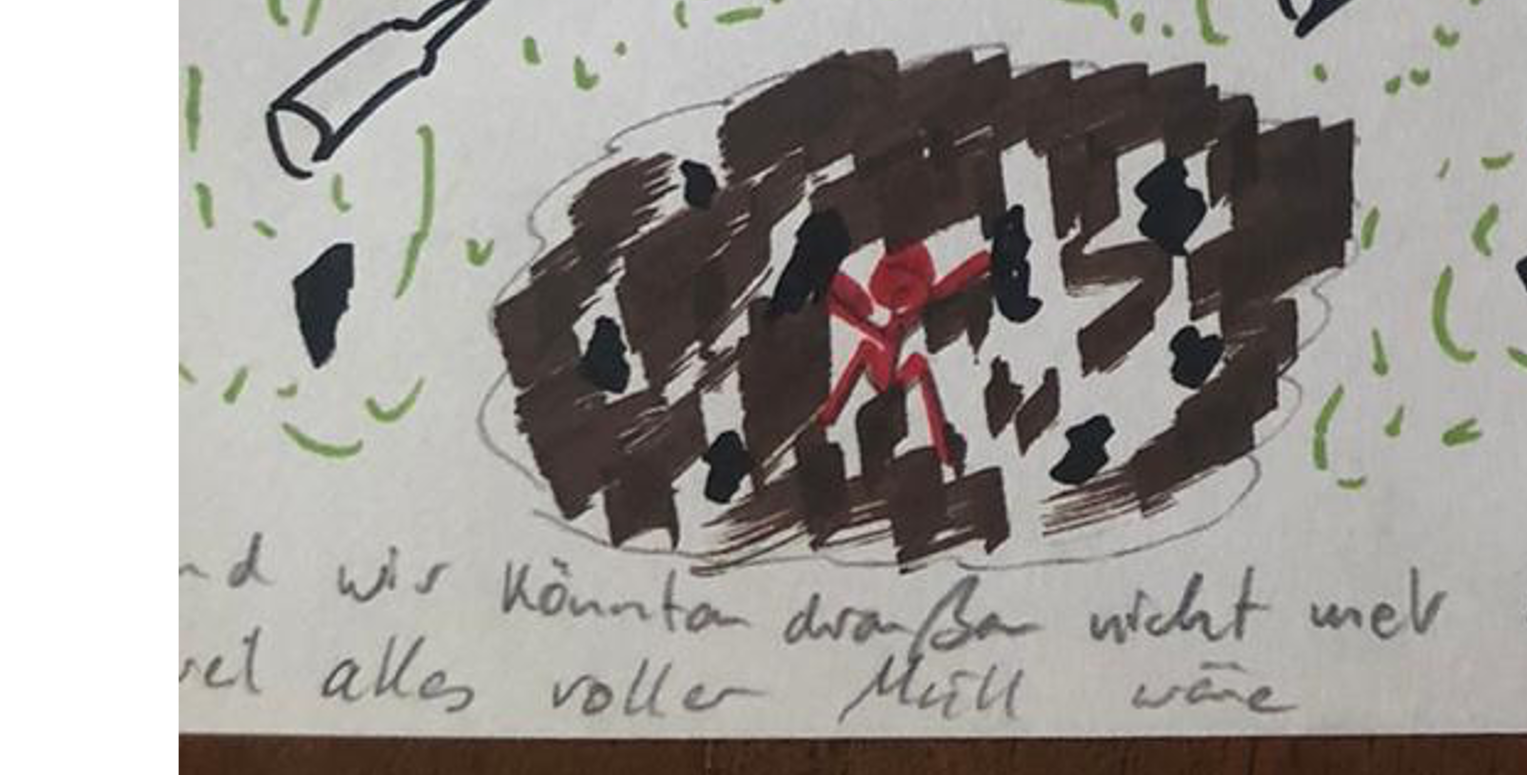 nd wir könnten draußen nicht mehr
eil alles voller Müll wäre